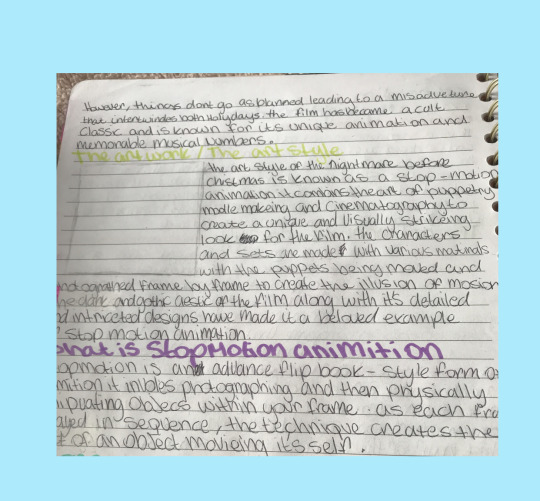 However, things dont go as planned leading to a misadvetune
that intertwindes both holydays. the film has became a cult
Classic and is known for its unique animation and
memorable musical numbers.
The art work / The art style
the art style of the nightmare before
christmas is known as a stop-motion
animation it contains the art of puppetry
modle makeing and cinematography to
create a unique and visually strikeing
look for the film. the characters
and sets are made with various matirals
with the puppets being moved and
photographed frame by frame to create the illusion of mosion
the dark and gothic aestic of the film along with it's detailed
nd intriceted designs have made it a beloved example
stop motion animation.
what is StopMotion animition
opmotion is an adivance flip book-style form o
mition it inloles photographing and then physically
ipuating Objecs within your frame. as each fra
ayed in sequence, the technique creates the
of an object moviging it's self.